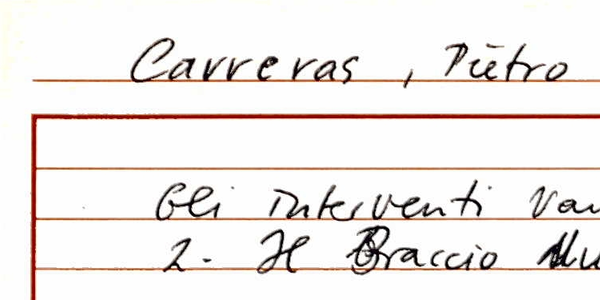 Carreras, Pietro
Gli interventi Van
2. Il Braccio Nu